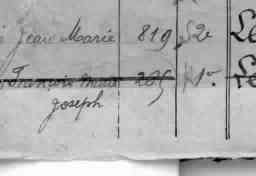 Jean Marie 819 S2e Le
François Marie 265 1er Le
Joseph